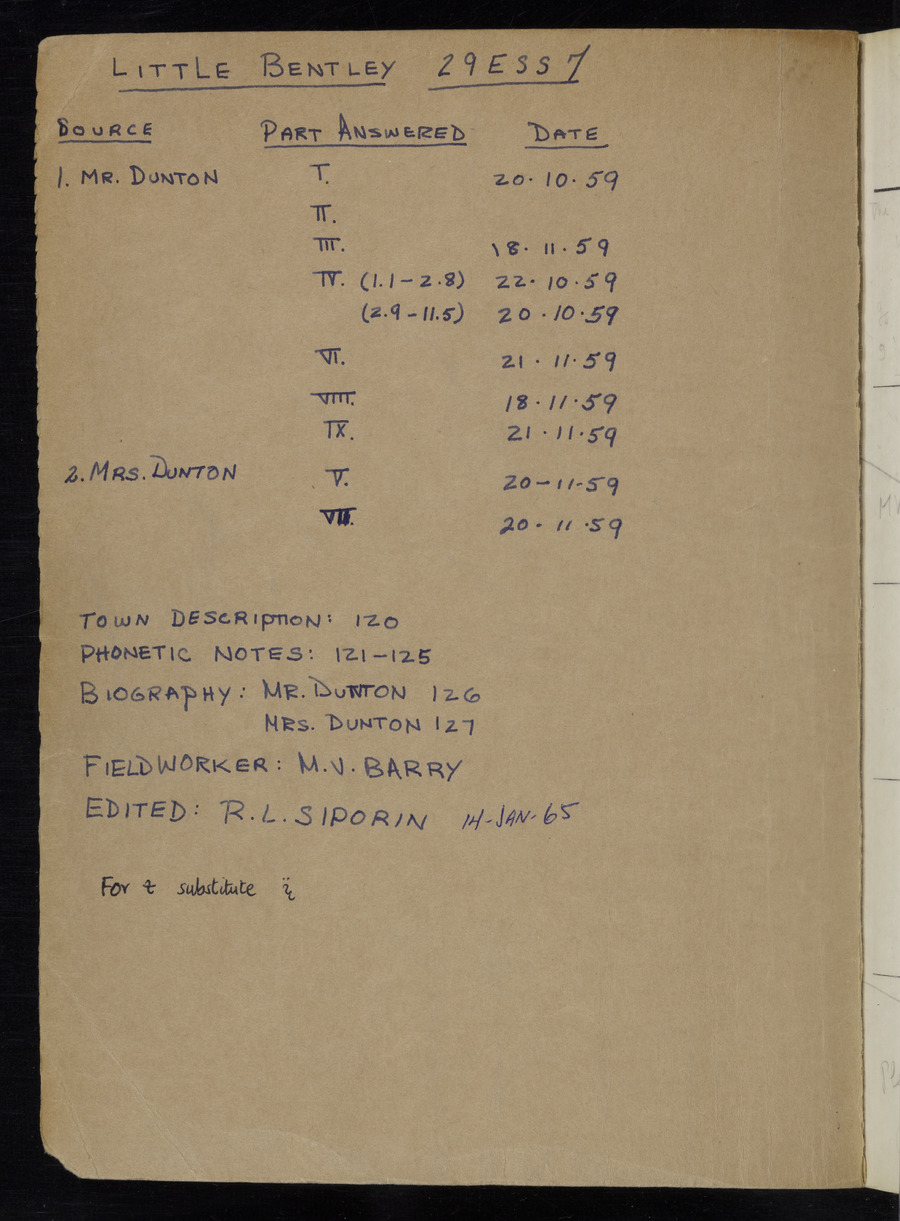 LITTLE BENTLEY 29ESS7
SOURCE PART ANSWERED DATE
1. MR. DUNTON I. 20.10.59
II.
III. 18.11.59
IV. (1.1-2.8) 22.10.59
(2.9-11.5) 20.10.59
VI. 21.11.59
VIII. 18.11.59
IX. 21.11.59
2. MRS. DUNTON V. 20-11-59
VII. 20.11.59
TOWN DESCRIPTION: 120
PHONETIC NOTES: 121-125
BIOGRAPHY: MR. DUNTON 126
MRS. DUNTON 127
FIELDWORKER: M.V. BARRY
EDITED: R.L. SIPORIN 14-JAN-65
For substitute